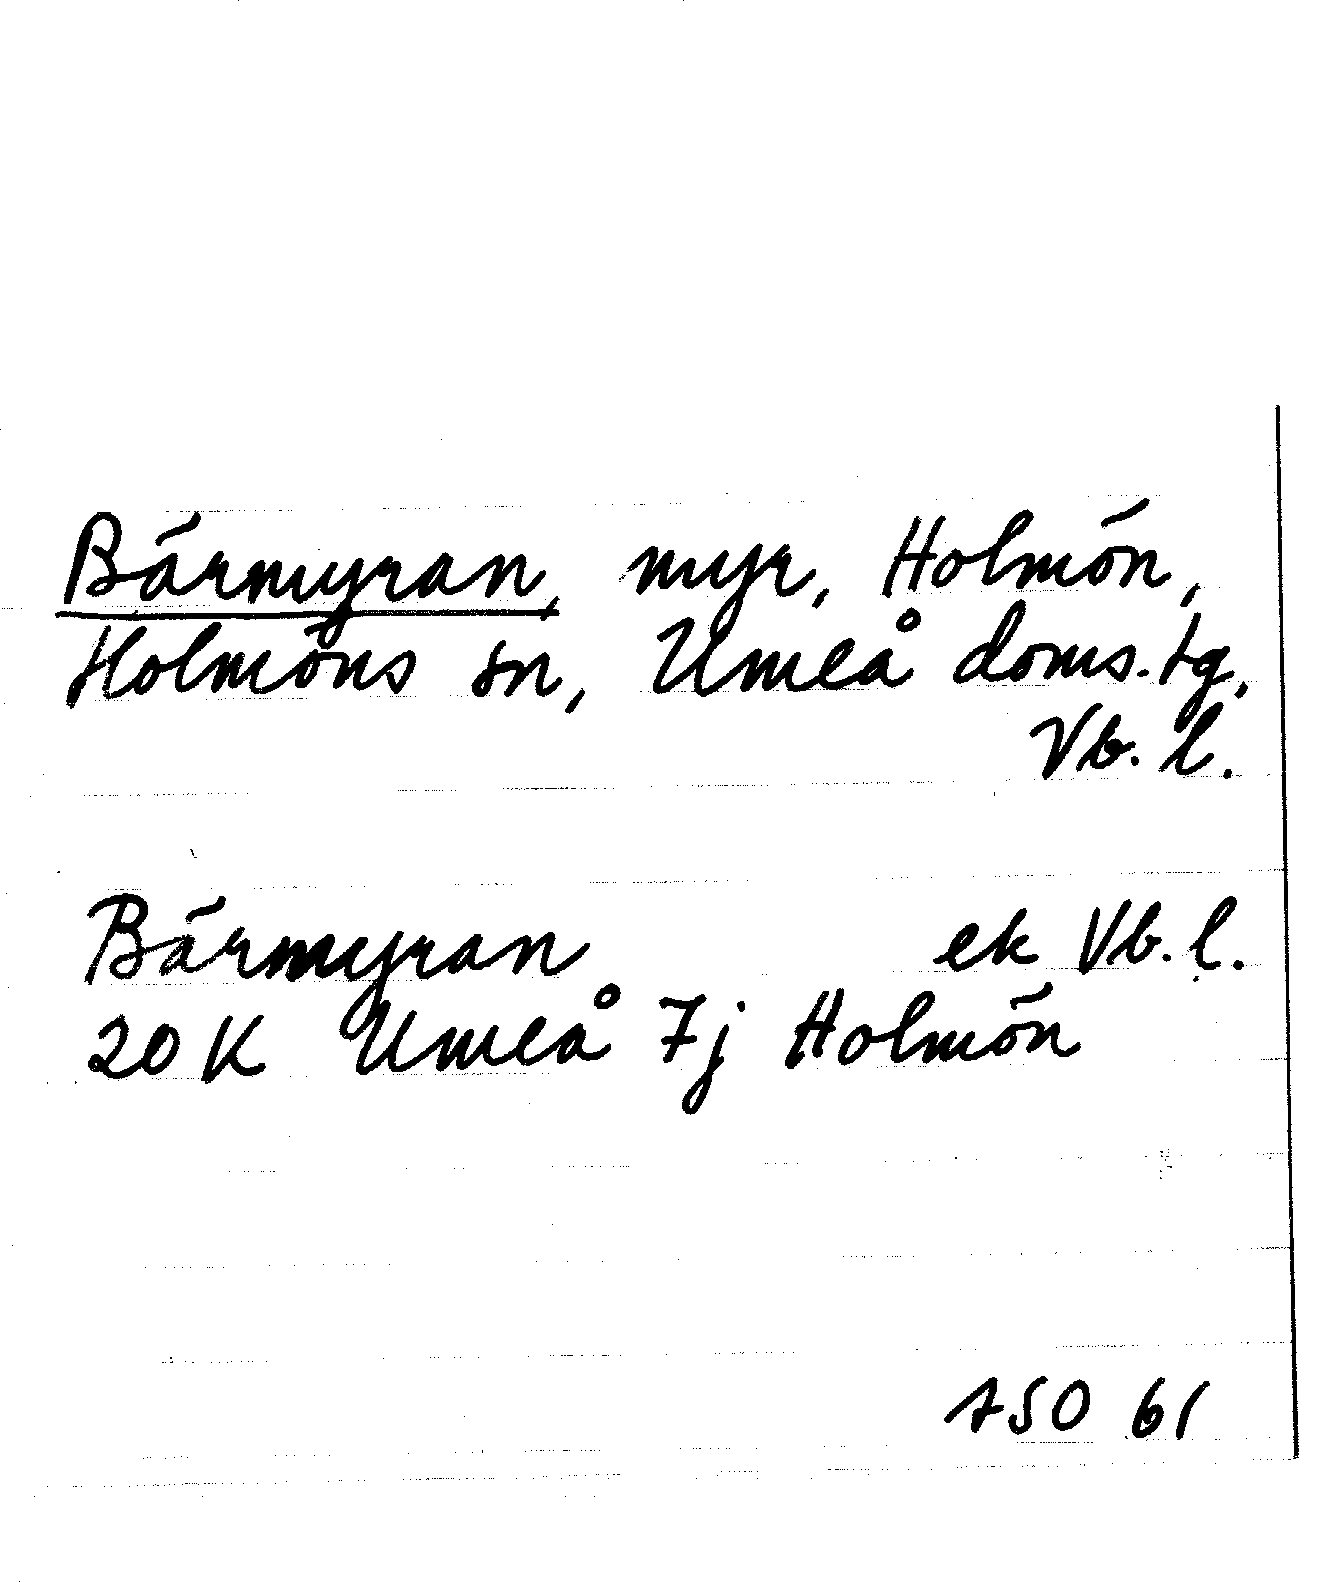 Bärmyran, myr, Holmön,
Holmöns sn, Umeå doms.tg,
Vb. l.
Bärmyran ek Vb. l.
20 K Umeå 7j Holmön
ASO 61